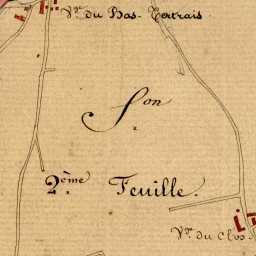 Vge du Bas-Tertrais
Son
2ème Feuille.
Vge du Clos